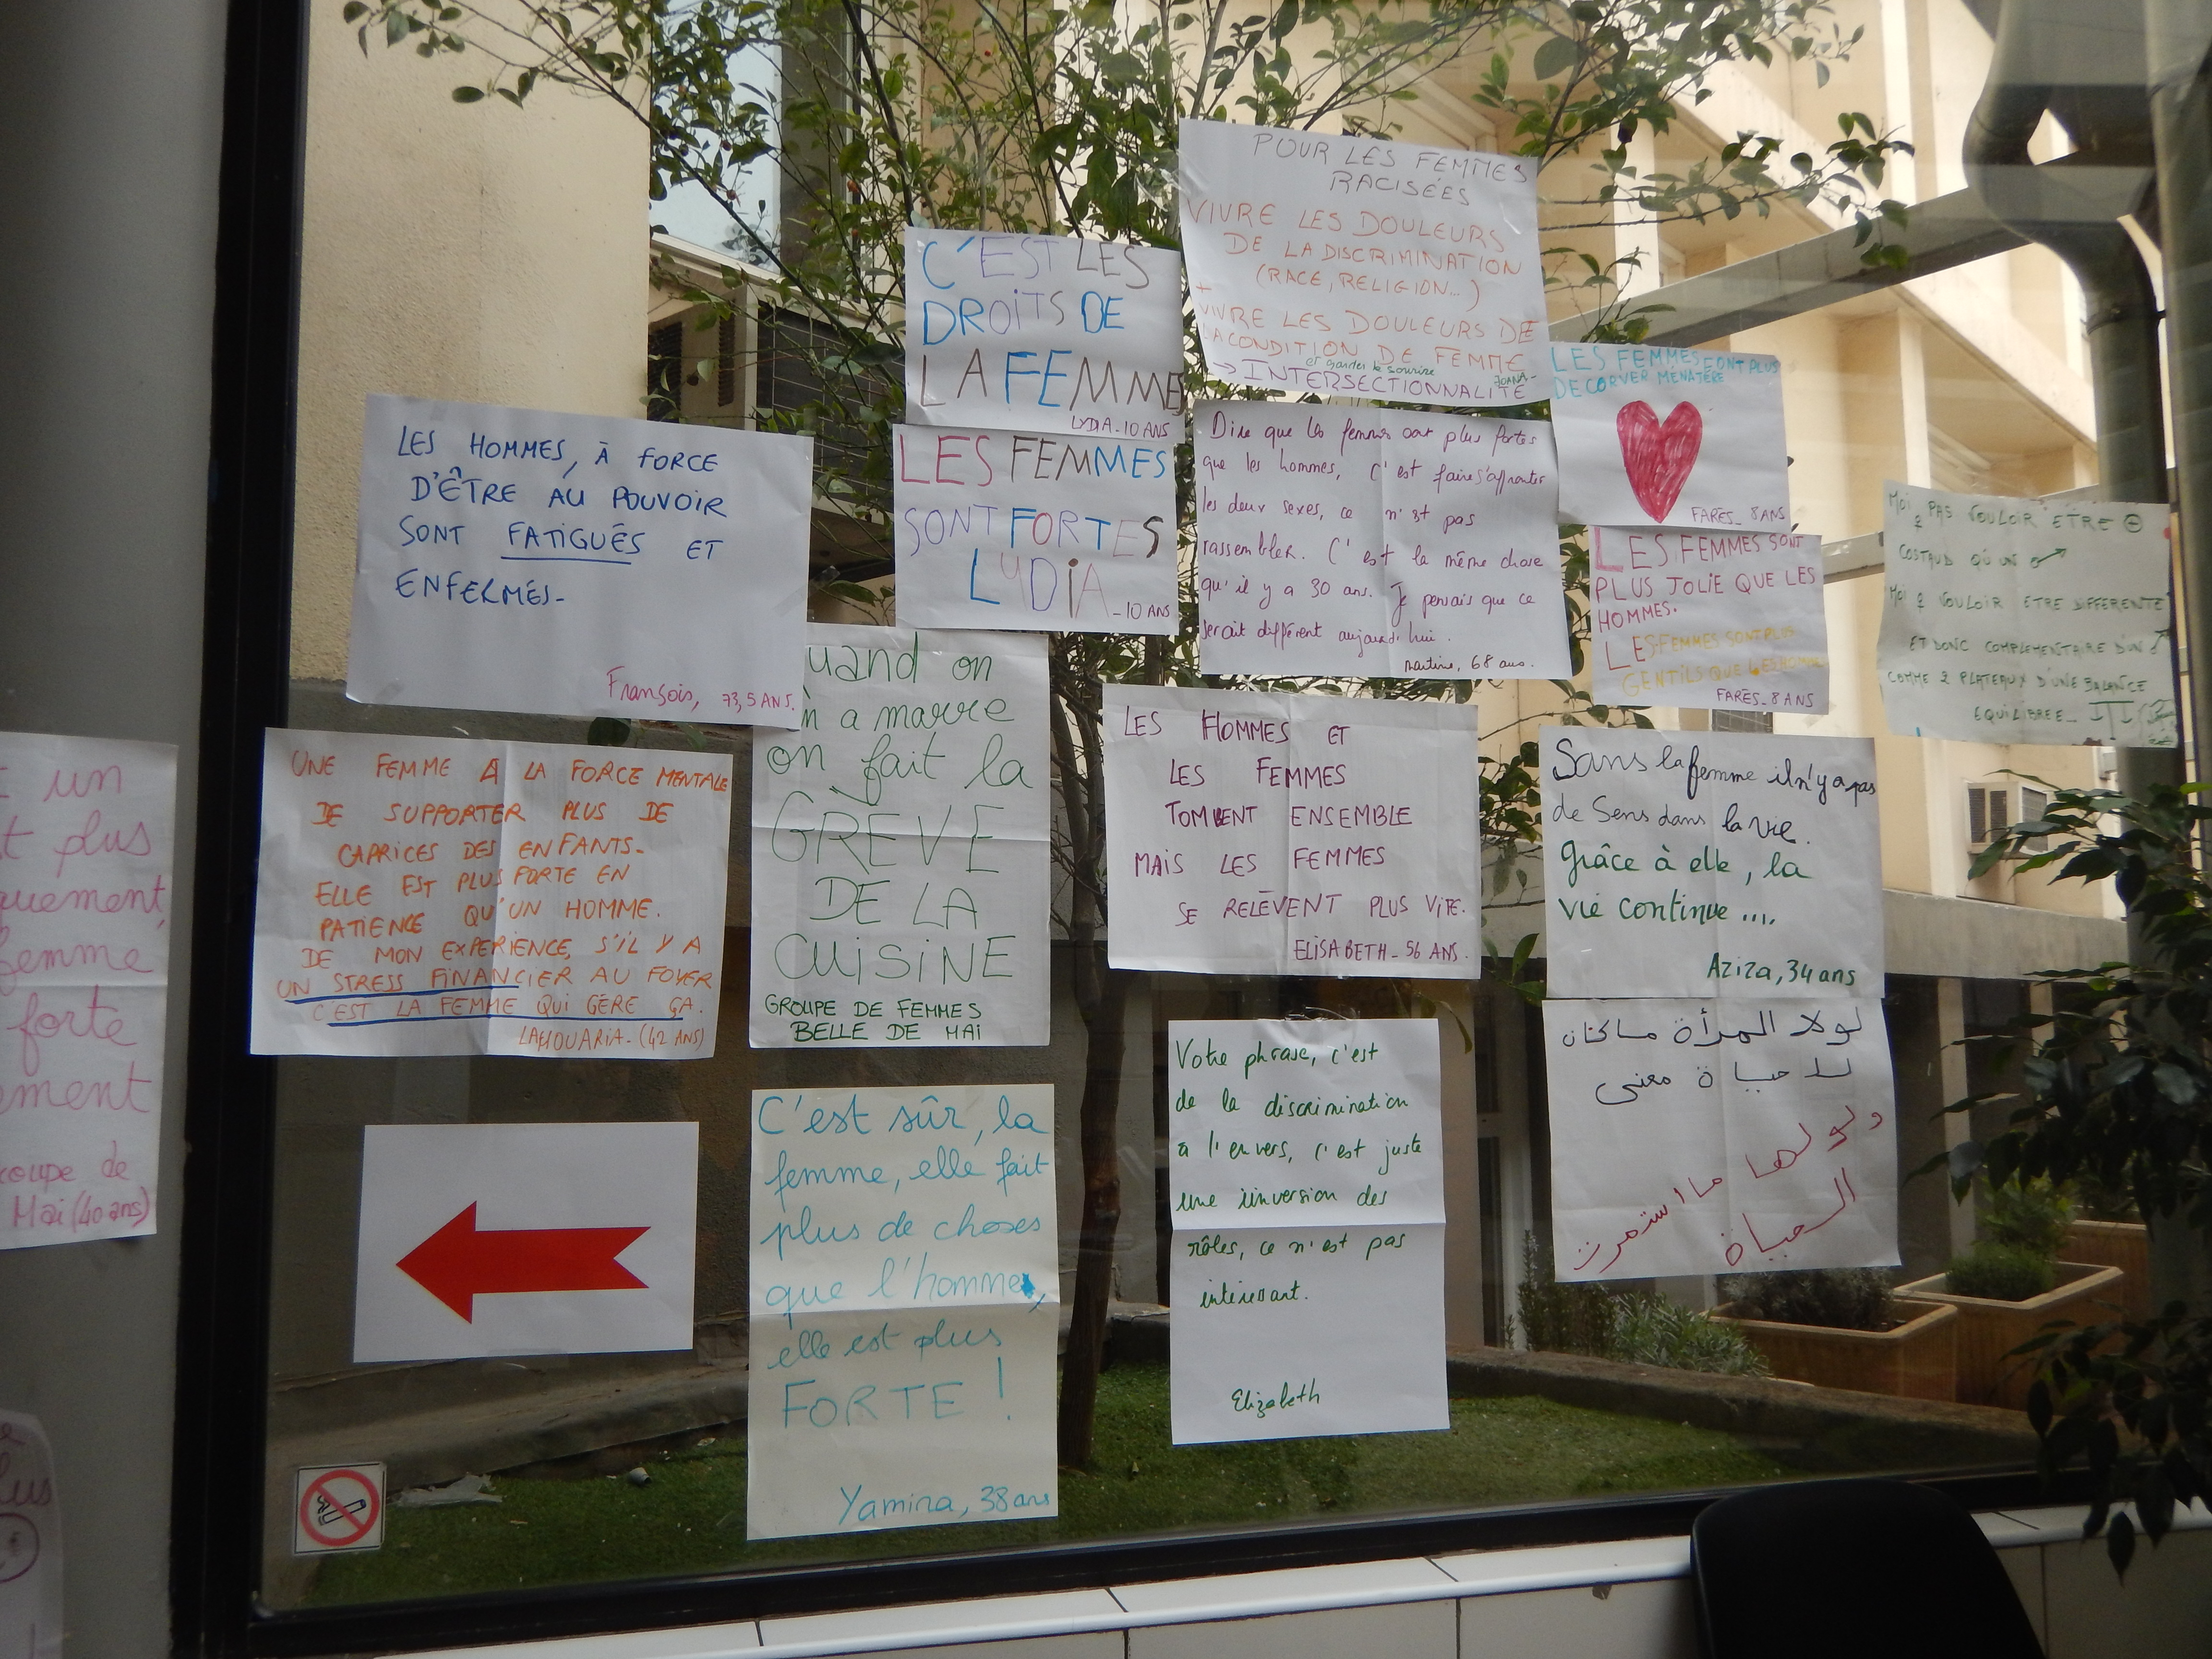 POUR LES FEMMES
RACISÉES
VIVRE LES DOULEURS
DE LA DISCRIMINATION
(RACE, RELIGION...)
+
VIVRE LES DOULEURS DE
LA CONDITION DE FEMME
et garder le sourire
→ INTERSECTIONNALITÉ
C'EST LES
DROITS DE
LA FEMME
LYDIA - 10 ANS
LES FEMMES FONT PLUS
DE CORVER MENATÈRE
FARES - 8 ANS
LES HOMMES, À FORCE
D'ÊTRE AU POUVOIR
SONT FATIGUÉS ET
ENFERMÉS -
François, 73,5 ANS.
LES FEMMES
SONT FORTES
LYDIA
- 10 ANS
Dire que les femmes sont plus fortes
que les hommes, c'est faire s'affronter
les deux sexes, ce n'est pas
rassembler. C'est la même chose
qu'il y a 30 ans. Je pensais que ce
serait différent aujourd'hui.
Martine, 68 ans.
LES FEMMES SONT
PLUS JOLIE QUE LES
HOMMES.
LES FEMMES SONT PLUS
GENTILS QUE LES HOMMES
FARES - 8 ANS
MOI ♀ PAS VOULOIR ETRE ⊕
COSTAUD QU'UN ♂
MOI ♀ VOULOIR ETRE DIFFERENTE
ET DONC COMPLEMENTAIRE D'UN ♂
COMME 2 PLATEAUX D'UNE BALANCE
EQUILIBREE -
uand on
n a marre
on fait la
GRÈVE
DE LA
CUISINE
GROUPE DE FEMMES
BELLE DE MAI
LES HOMMES ET
LES FEMMES
TOMBENT ENSEMBLE
MAIS LES FEMMES
SE RELÈVENT PLUS VITE.
ELISABETH - 56 ANS.
UNE FEMME A LA FORCE MENTALE
DE SUPPORTER PLUS DE
CAPRICES DES ENFANTS -
ELLE EST PLUS FORTE EN
PATIENCE QU'UN HOMME.
DE MON EXPERIENCE, S'IL Y A
UN STRESS FINANCIER AU FOYER
C'EST LA FEMME QUI GÈRE ÇA.
LAHOUARIA - (42 ANS)
Sans la femme il n'y a pas
de Sens dans la vie.
Grâce à elle, la
vie continue ....
Aziza, 34 ans
un
t plus
quement,
femme
forte
ement
oupe de
Mai (40 ans)
لولا المرأة ما كان
للحياة معنى
ولولها ما استمرت
الحياة
C'est sûr, la
femme, elle fait
plus de choses
que l'homme,
elle est plus
FORTE !
Yamina, 38 ans
Votre phrase, c'est
de la discrimination
à l'envers, c'est juste
une inversion des
rôles, ce n'est pas
intéressant.
Elizabeth
lus